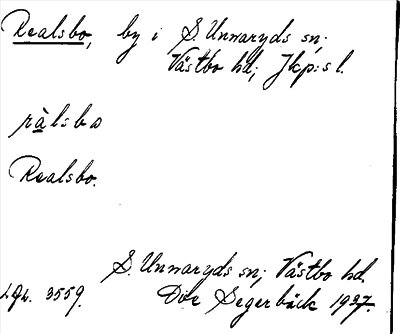 Realsbo, by i S. Unnaryds sn;
Västbo hd; Jkp:s l.
rà̱l:sbo
Realsbo.
S. Unnaryds sn; Västbo hd.
Lgh. 3559. Dive Segerbäck 1937.